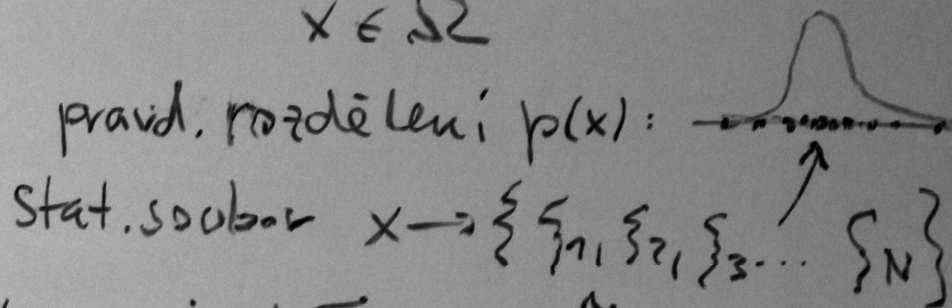 x ∈ Ω
pravd. rozdělení p(x):
Stat. soubor x → { ξ₁, ξ₂, ξ₃ ... ξ_N }